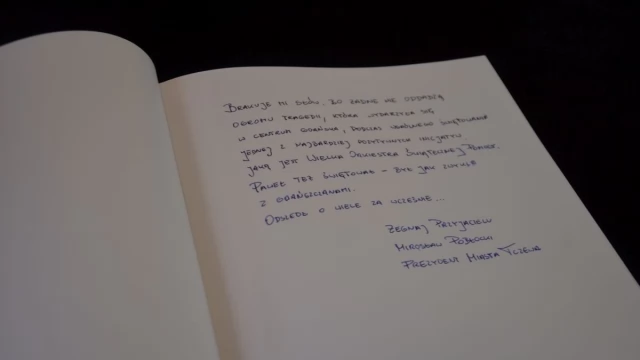 BRAKUJE MI SŁÓW. BO ŻADNE NE ODDADZĄ
OGROMU TRAGEDII, KTÓRA WYDARZYŁA SIĘ
W CENTRUM GDAŃSKA, PODCZAS WSPÓLNEGO ŚWIĘTOWANIA
JEDNEJ Z NAJBARDZIEJ POZYTYWNYCH INICJATYW
JAKĄ JEST WIELKA ORKIESTRA ŚWIĄTECZNEJ POMOCY.
PAWEŁ TEŻ ŚWIĘTOWAŁ - BYŁ JAK ZWYKLE
Z GDAŃSZCZANAMI.
ODSZEDŁ O WIELE ZA WCZEŚNIE...
ŻEGNAJ PRZYJACIELU
MIROSŁAW POBŁOCKI
PREZYDENT MIASTA TCZEWA